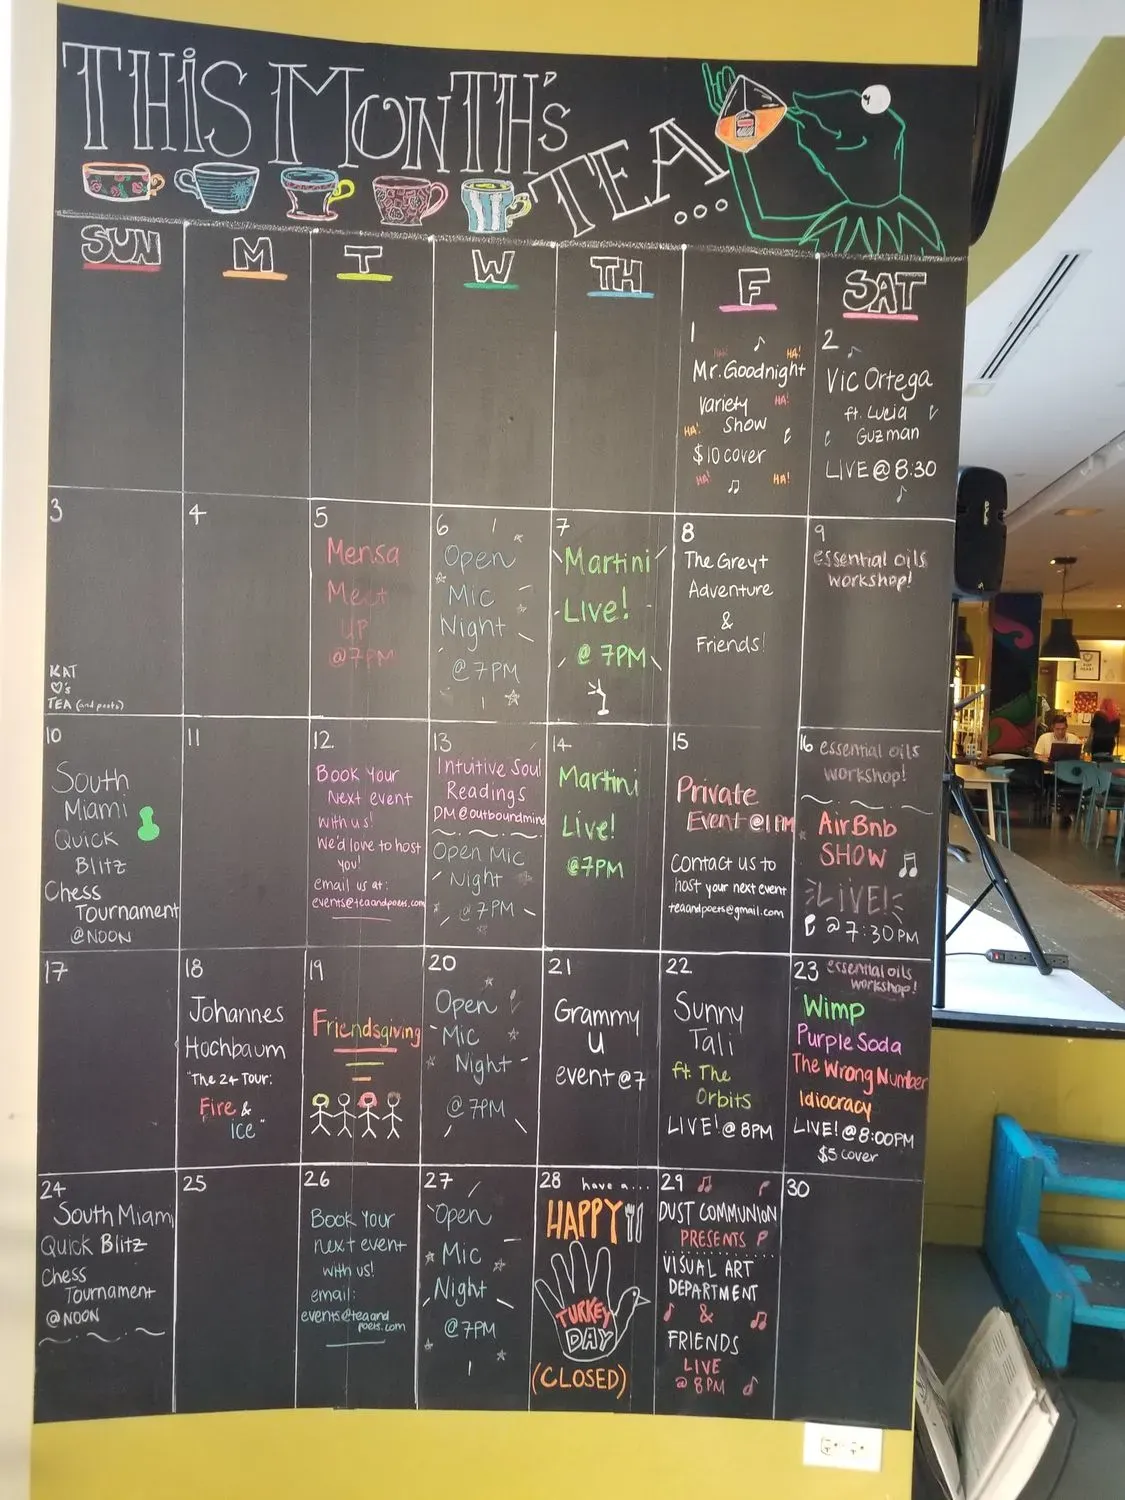 THIS MONTH'S
TEA...
SUN
M
T
W
TH
F
SAT
1
HA!
HA!
Mr. Goodnight
Variety
HA!
Show
HA!
$10 cover
HA!
HA!
2
Vic Ortega
ft. Lucia
Guzman
LIVE @ 8:30
3
KAT
♡'s
TEA (and poets)
4
5
Mensa
Meet
UP
@7PM
6
Open
Mic
Night
@ 7PM
7
Martini
Live!
@ 7PM
8
The Greyt
Adventure
&
Friends!
9
essential oils
workshop!
10
South
Miami
Quick
Blitz
Chess
Tournament
@NOON
11
12
Book Your
Next event
with us!
We'd love to host
you!
email us at:
events@teaandpoets.com
13
Intuitive Soul
Readings
DM@outboundmind
OPEN MIC
Night
@ 7PM
14
Martini
Live!
@7PM
15
Private
Event @1PM
Contact us to
host your next event
teaandpoets@gmail.com
16 essential oils
workshop!
AirBnb
SHOW
LIVE!
@ 7:30PM
17
18
Johannes
Hochbaum
"The 24 Tour:
Fire &
ice"
19
Friendsgiving
20
Open
Mic
Night
@ 7PM
21
Grammy
U
event @7
22
Sunny
Tali
ft. The
Orbits
LIVE! @ 8PM
23 essential oils
workshop!
Wimp
Purple Soda
The Wrong Number
Idiocracy
LIVE! @ 8:00PM
$5 cover
24
South Miami
Quick Blitz
Chess
Tournament
@ NOON
25
26
Book Your
next event
with us!
email:
events@teaand
poets.com
27
Open
Mic
Night
@ 7PM
28 have a...
HAPPY
TURKEY
DAY
(CLOSED)
29
DUST COMMUNION
PRESENTS
VISUAL ART
DEPARTMENT
&
FRIENDS
LIVE
@ 8PM
30